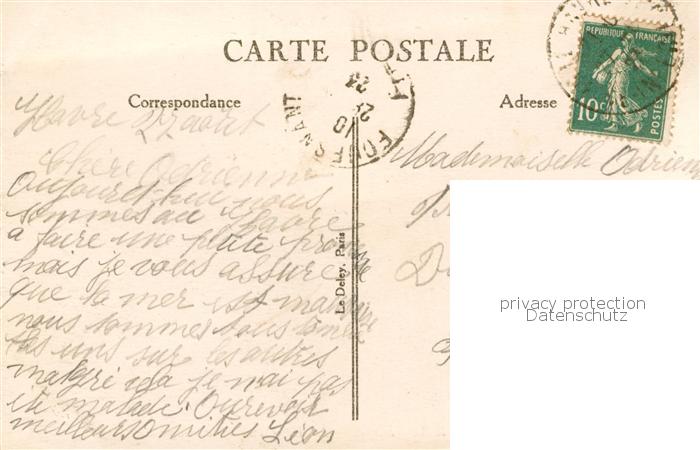 CARTE POSTALE
Correspondance
Adresse
REPUBLIQUE FRANÇAISE
10c
POSTES
FOUESNANT
Havre 27 aout
Chère Adrienne
Aujourd'hui nous
sommes au Havre
à faire une petite
mais je vous assure
que la mer est
nous sommes tous
les uns sur les autres
malgré je n'ai pas
été malade. Aurevoir
meilleurs amitiés Léon
Le Deley, Paris
Mademoiselle
privacy protection
Datenschutz